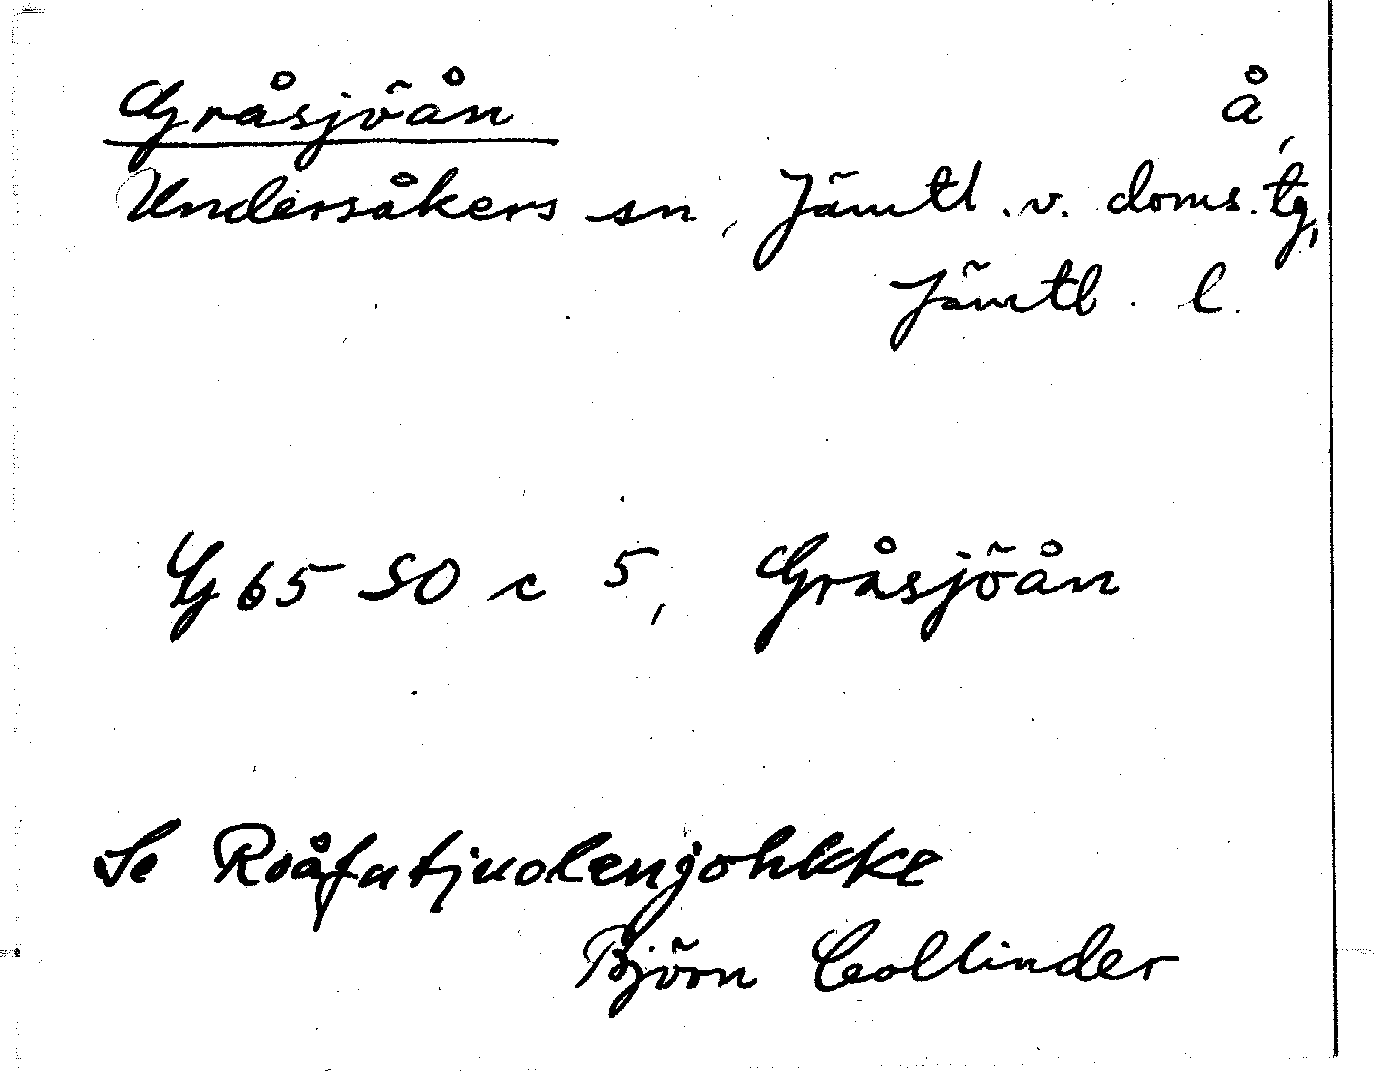 Gråsjöån å,
Undersåkers sn, Jämtl. v. doms. tg,
Jämtl. l.
G 65 SO c 5, Gråsjöån
Se Roåfatjuolenjohkke
Björn Collinder